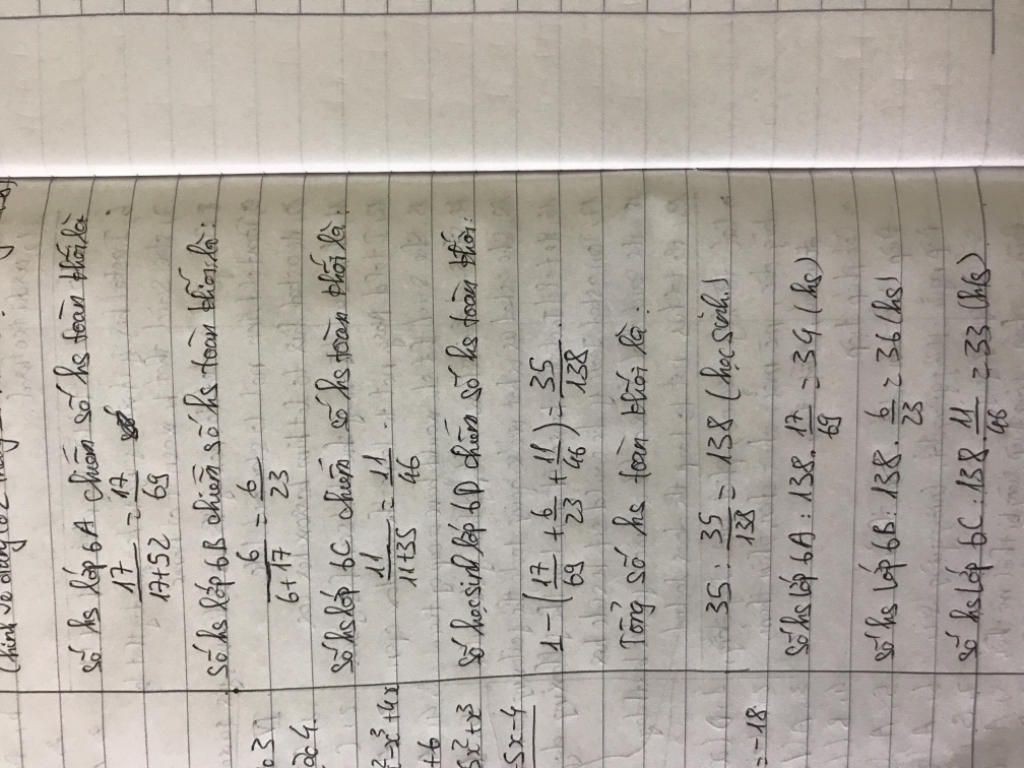 Số hs lớp 6A chiếm số hs toàn khối là
17/(17+52) = 17/69
Số hs lớp 6B chiếm số hs toàn khối là:
6/(6+17) = 6/23
Số hs lớp 6C chiếm số hs toàn khối là:
11/(11+35) = 11/46
Số học sinh lớp 6D chiếm số hs toàn khối:
1 - (17/69 + 6/23 + 11/46) = 35/138
Tổng số hs toàn khối là:
35 : 35/138 = 138 (học sinh)
Số hs lớp 6A : 138 . 17/69 = 34 (hs)
Số hs lớp 6B : 138 . 6/23 = 36 (hs)
Số hs lớp 6C : 138 . 11/46 = 33 (hs)
+6
5x-4
=-18